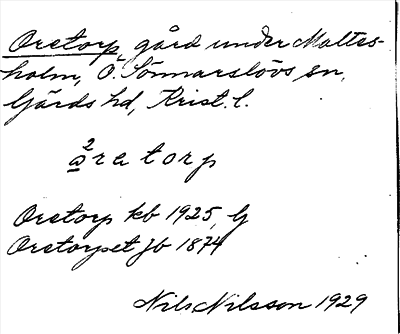 Oretorp, gård under Maltes-
holm, Ö. Sönnarslövs sn,
Gärds hd, Krist. l.
2
åretorp
Oretorp kb 1925
Oretorpet jb 1874
Nils Nilsson 1929